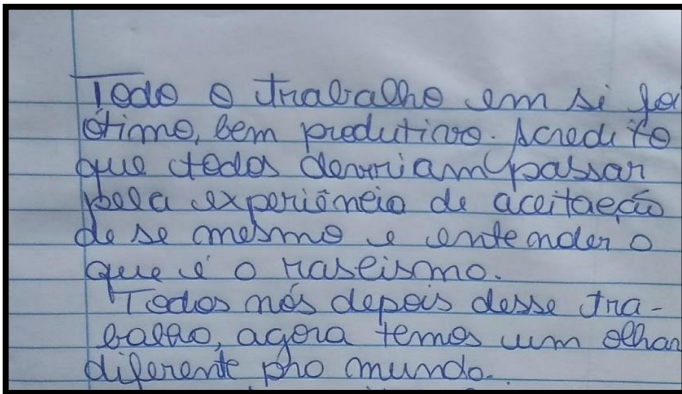 Todo o trabalho em si foi
ótimo, bem produtivo. Acredito
que todos devriam passar
pela experiência de aceitação
de se mesmo e entender o
que é o rascismo.
Todos nós depois desse tra-
balho, agora temos um olhar
diferente pro mundo.